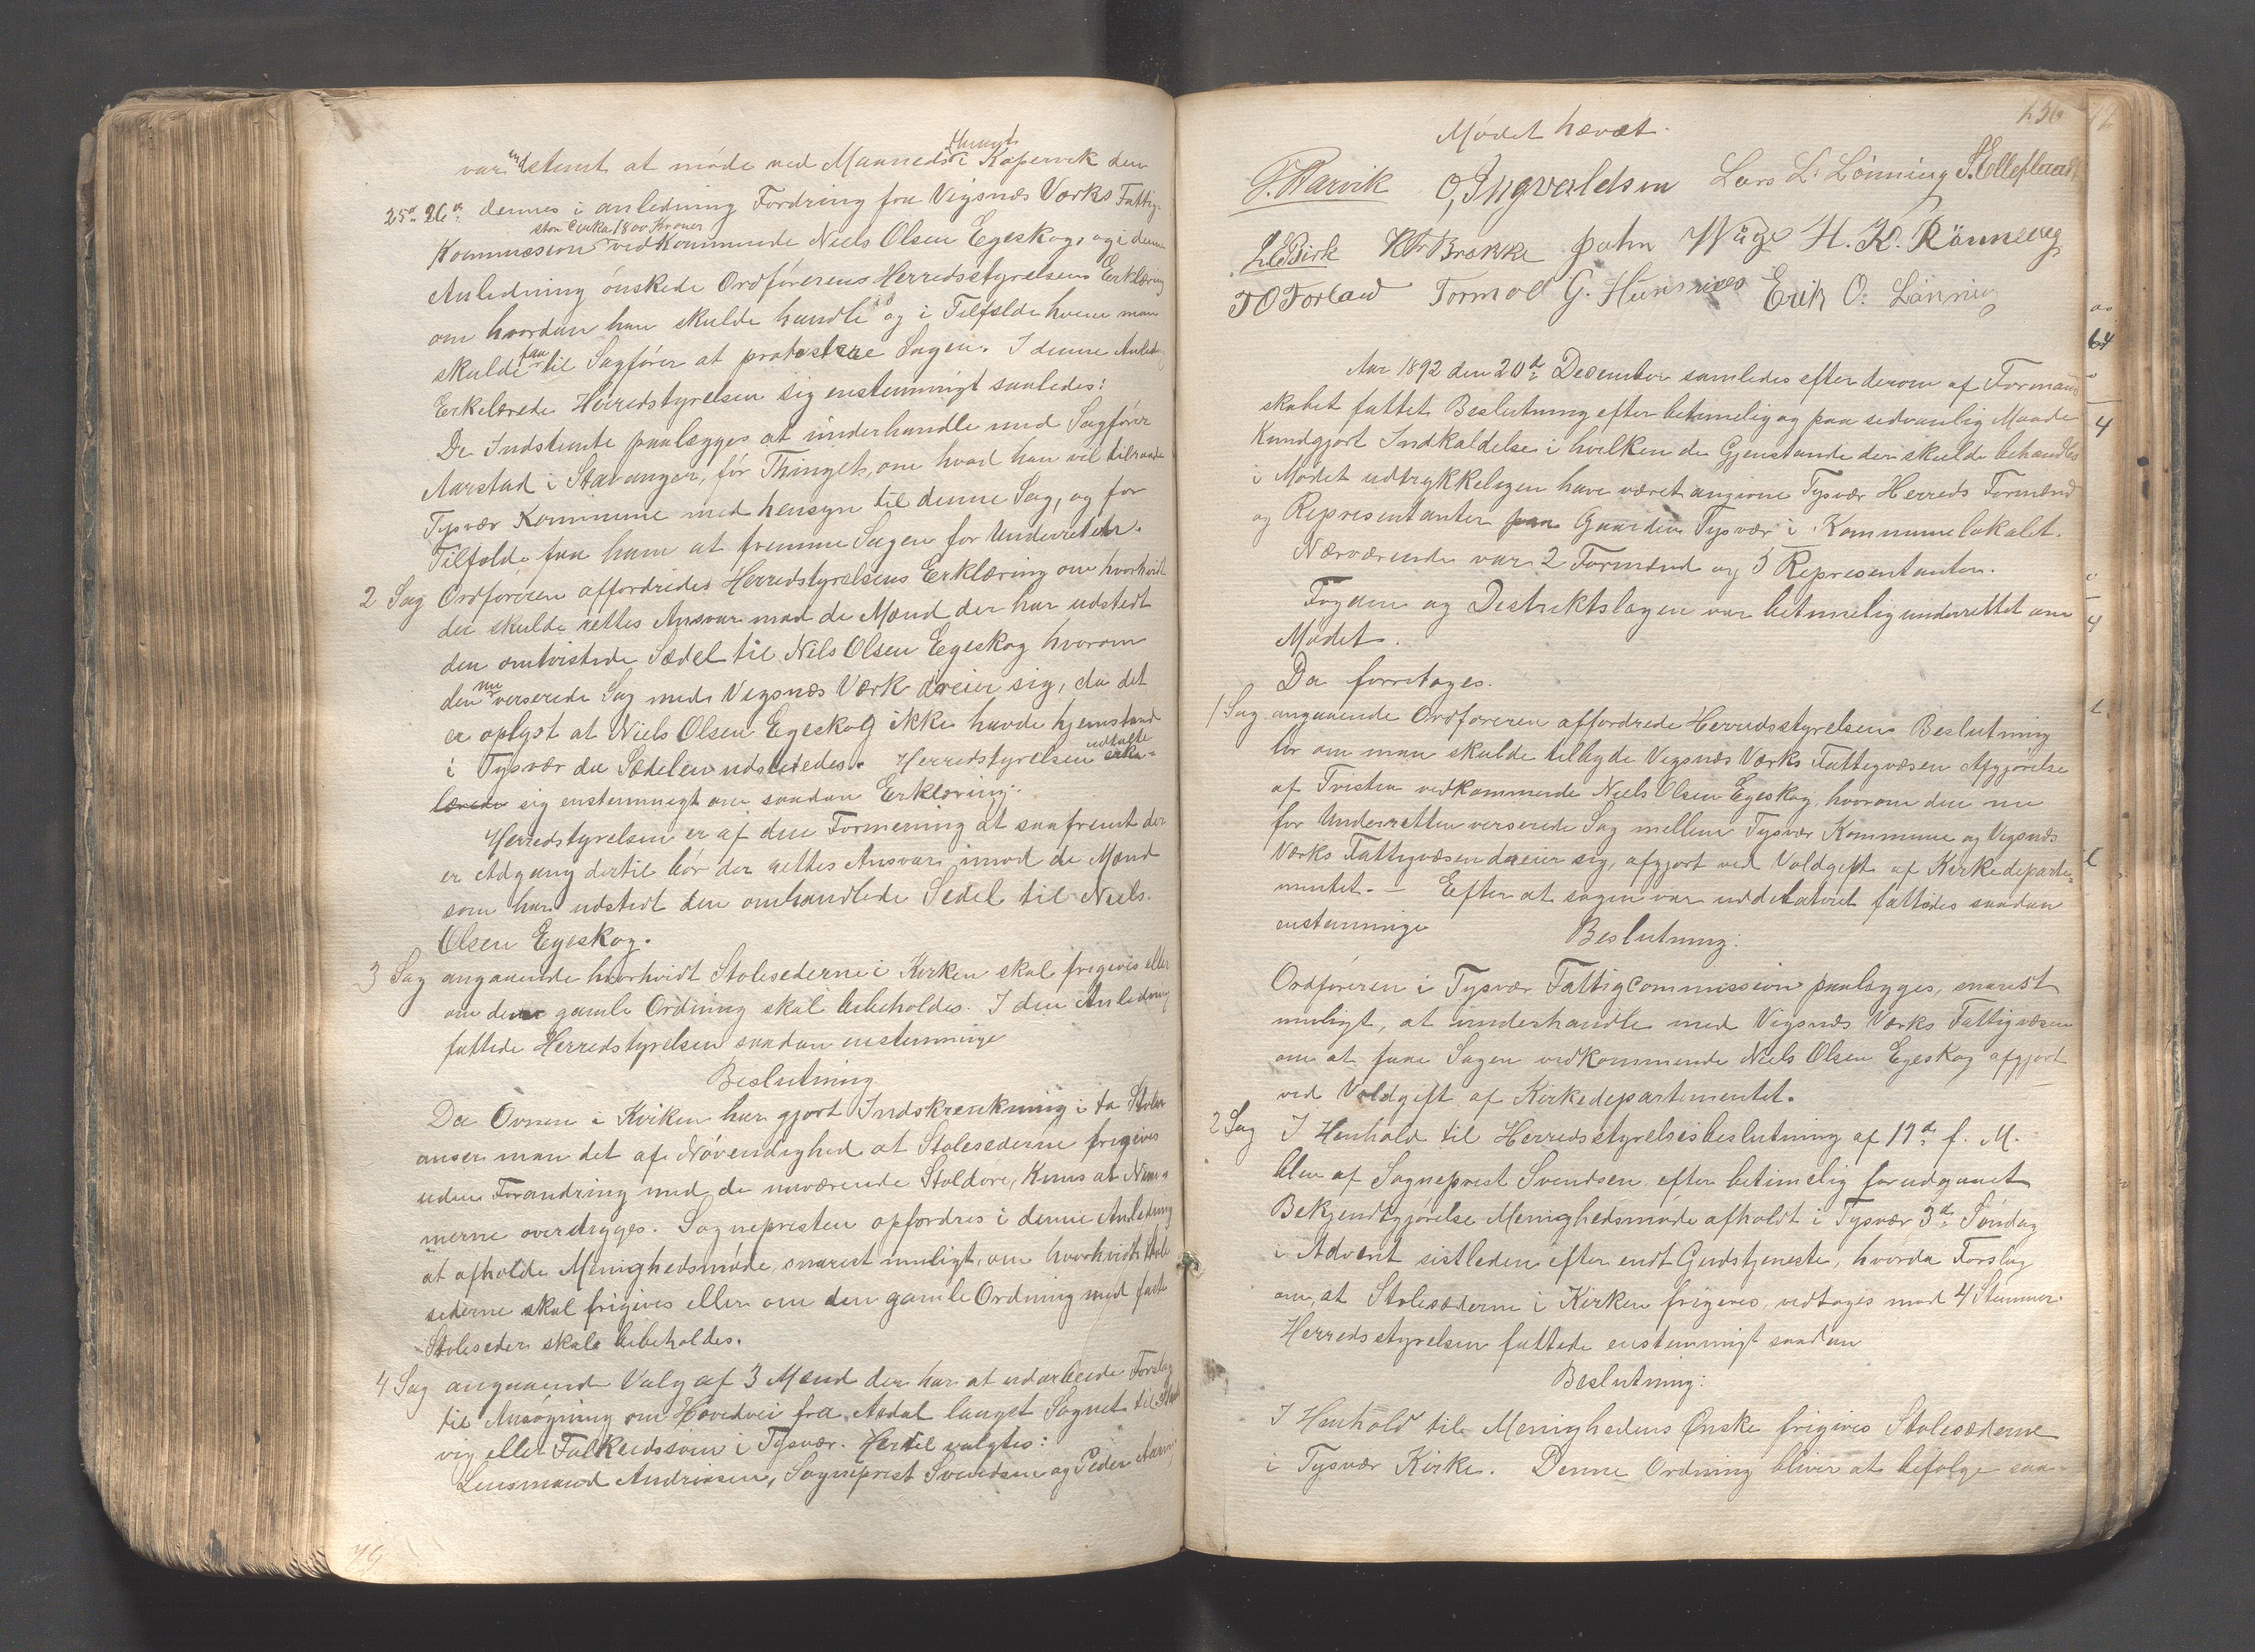 var indstemt at møde ved Maanedsthinget i Kopervik den
25de 26de dennes i anledning Fordring fra Vigsnæs Værks Fattig-
Kommission stor cirka 1800 Kroner vedkommende Niels Olsen Egeskog, og i denne
Anledning ønskede Ordføreren Herredsstyrelsens Erklæring
om hvordan han skulde handle og i Tilfælde hvem man
skulde faa til Sagfører at protestere Sagen. I denne Anledn.
Erkelærede Herredstyrelsen sig enstemmigt saaledes:
De Indstemte paalægges at underhandle med Sagfører
Aarstad i Stavanger, før Thinget, om hvad han vil tilraade
Tysvær Kommune med hensyn til denne Sag, og for
Tilfælde faa ham at fremme Sagen for Underretten.
2 Sag Ordføreren affordredes Herredstyrelsens Erklæring om hvorhvidt
der skulde rettes Ansvar mod de Mænd der har udstedt
den omtvistede Sædel til Niels Olsen Egeskog hvorom
den nu verserede Sag med Vigsnæs Værk dreier sig, da det
er oplyst at Niels Olsen Egeskog ikke havde hjemstand
i Tysvær da Sædelen udstededes. Herredstyrelsen udtalte erke-
lærede sig enstemmigt om saadan Erklæring:
Herredstyrelsen er af den Formening at saafremt der
er Adgang dertil bør der rettes Ansvar imod de Mænd
som har udstedt den omhandlede Sedel til Niels
Olsen Egeskog.
3 Sag angaaende hvorhvidt Stolesederne i Kirken skal frigives eller
om den gamle Ordning skal bibeholdes. I den Anledning
fattede Herredstyrelsen saadan enstemmige
Beslutning
Da Ovnen i Kirken har gjort Indskrenkning i to Stoler
anser man det af Nøvendighed at Stolesederne frigives
uden Forandring med de nuværende Stoldøre, Kuns at Num-
merne overstryges. Sognepresten opfordres i denne Anledning
at afholde Menighedsmøde, snarest muligt, om hvorhvidt Stole
sederne skal frigives eller om den gamle Ordning med faste
Stoleseder skal bibeholdes.
4 Sag angaaende Valg af 3 Mænd der har at udarbeide Forslag
til Ansøgning om Hovedvei fra Asdal langst Sognet til
vig eller Falkeidssøen i Tysvær. Hertil valgtes:
Lensmand Andriasen, Sogneprest Svendsen og Peder
79
156
Mødet hævet.
T. Narvik O, Ingvaldsen Lars L. Lönning S. Elleflaadt
L E Birk K Fr Brække John Wåge H. K. Rönnevig
T O Forland Tormod G. Hünsnæs Erik O. Lønning
Aar 1892 den 20de December samledes efter derom af Formand-
skabet fattet Beslutning efter betimelig og paa sedvanlig Maade
Kundgjort Indkaldelse i hvilken de Gjenstande der skulde behandles
i Mødet udtrykkeligen have været angivne Tysvær Herreds Formænd
og Representanter paa Gaarden Tysvær i Kommunelokalet.
Nærværende var 2 Formænd og 5 Representanter.
Fogden og Destriktslægen var betimelig underrettet om
Mødet.
Da forretoges.
1 Sag angaaende Ordføreren affordrede Herredsstyrelsens Beslutning
for om man skulde tilbyde Vigsnæs Værks Fattigvæsen Afgjørelse
af Tvisten vedkommende Niels Olsen Egeskog, hvorom den nu
for Underretten verserede Sag mellem Tysvær Kommune og Vigsnæs
Værks Fattigvæsen dreier sig, afgjort ved Voldgift af Kirkedeparte-
mentet. — Efter at sagen var uddebateret fattedes saadan
enstemmige
Beslutning:
Ordføreren i Tysvær Fattigcommission paalægges, snarest
muligt, at underhandle med Vigsnæs Værks Fattigvæsen
om at faae Sagen vedkommende Niels Olsen Egeskog afgjort
ved Voldgift af Kirkedepartementet.
2 Sag I Henhold til Herredsstyrelsesbeslutning af 19de f. M.
blev af Sogneprest Svendsen efter betimelig forudgaaet
Bekjendtgjørelse Menighedsmøde afholdt i Tysvær 3de Søndag
i Advent sistleden efter endt Gudstjeneste, hvorda Forslag
om, at Stolesæderne i Kirken frigives, vedtoges mod 4 Stemmer.
Herredsstyrelsen fattede enstemmigt saadan
Beslutning:
I Henhold til Menighedens Ønske frigives Stolesæderne
i Tysvær Kirke. Denne Ordning bliver at befølge saa-
64
4
4